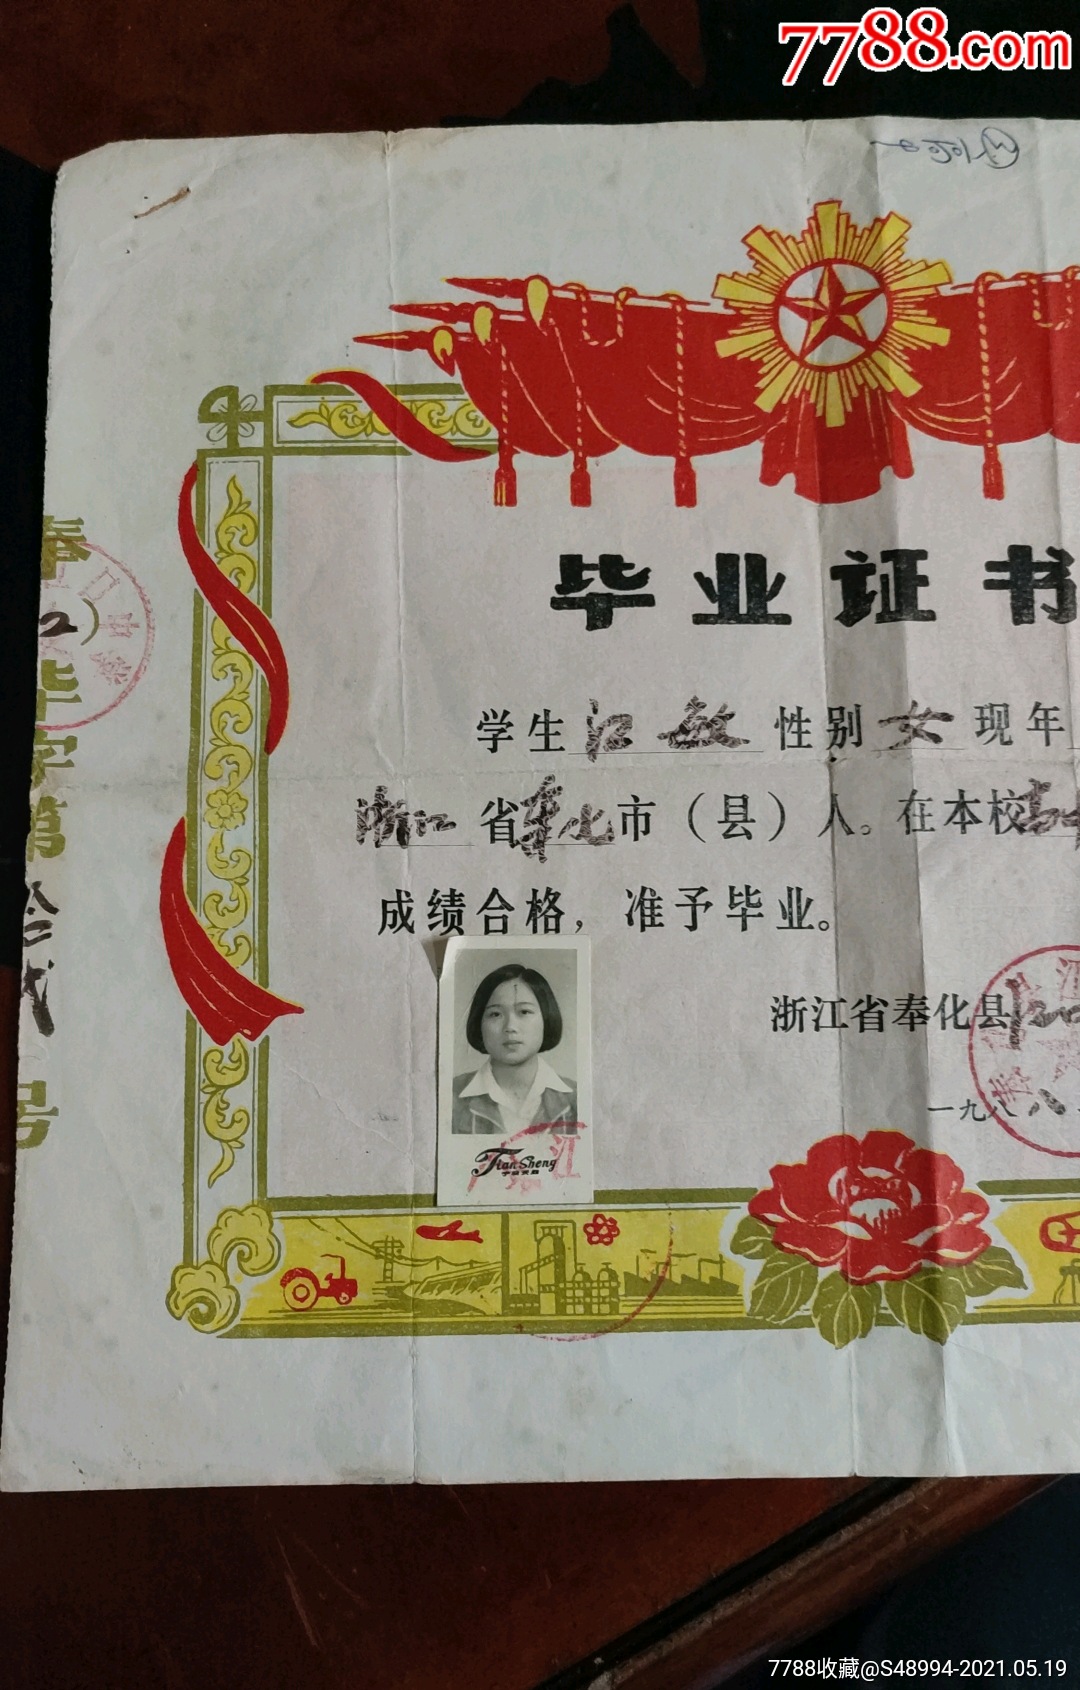 7788.com
毕业证书
学生江敏性别女现年
浙江省奉化市（县）人。在本校
成绩合格，准予毕业。
浙江省奉化县
一九八八
Tian Sheng
江
奉
2）
毕
字
第
拾
贰
号
7788收藏@S48994-2021.05.19